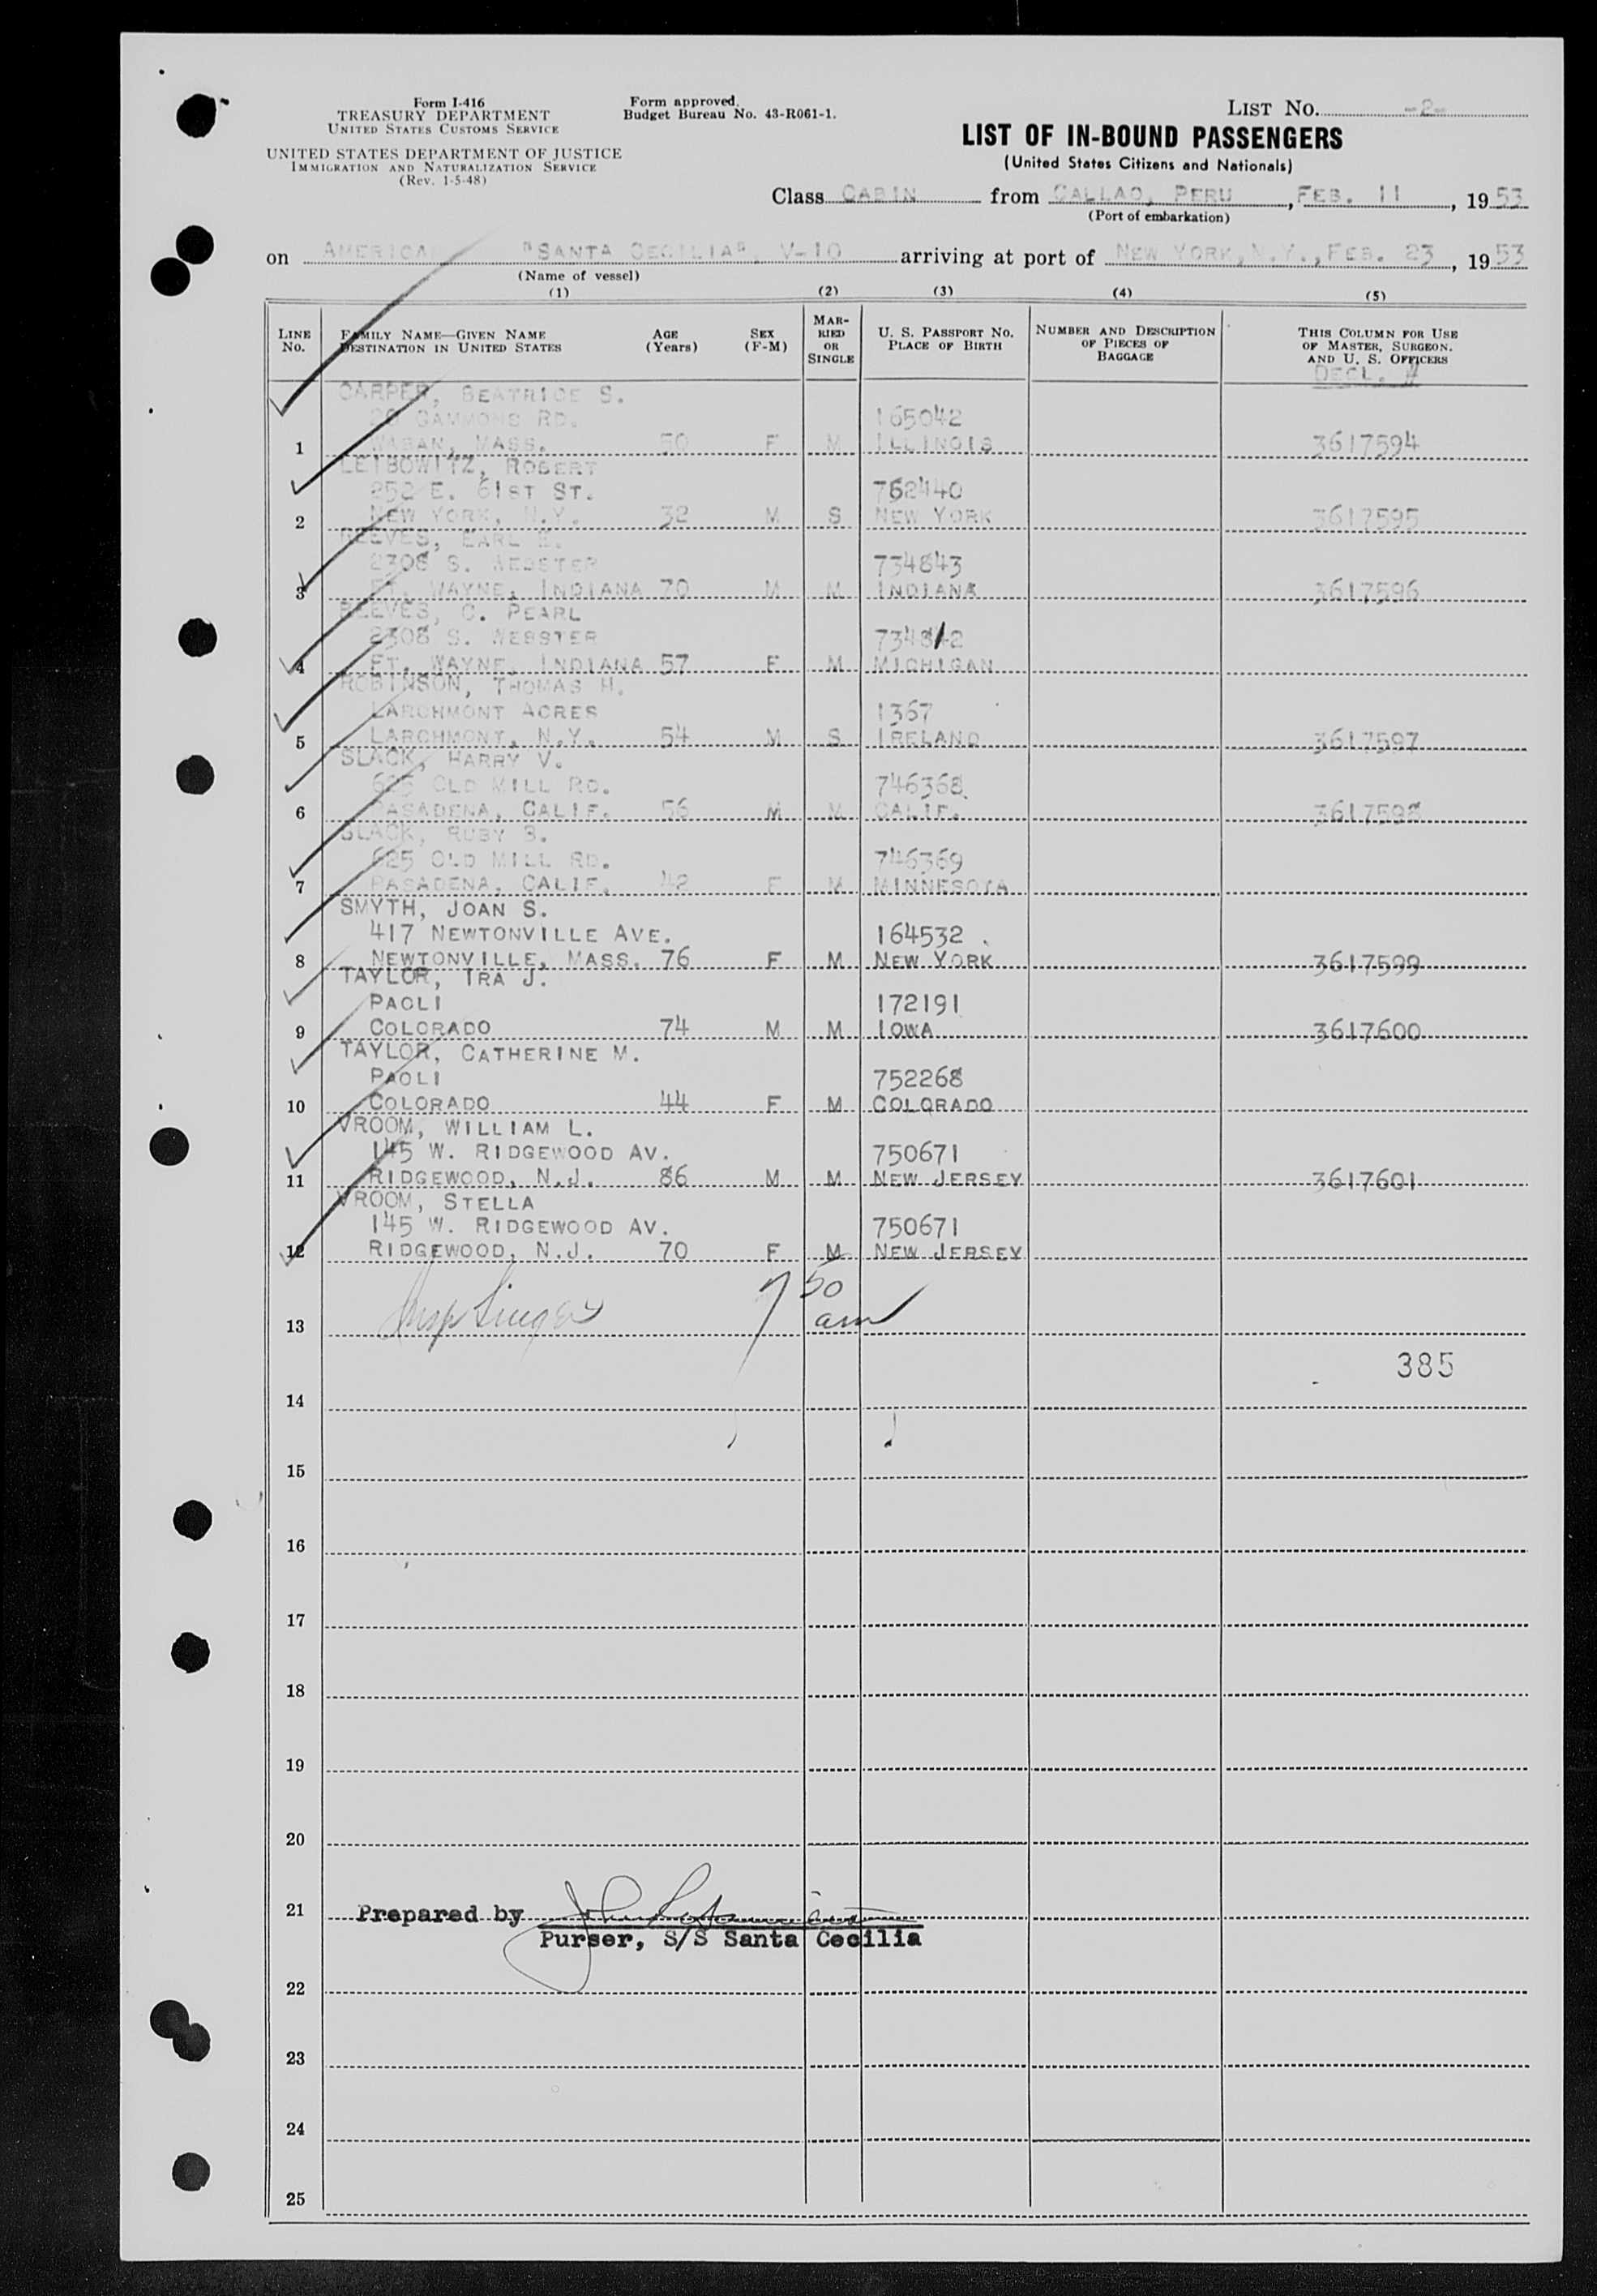 Form I-416
TREASURY DEPARTMENT
UNITED STATES CUSTOMS SERVICE
UNITED STATES DEPARTMENT OF JUSTICE
IMMIGRATION AND NATURALIZATION SERVICE
(Rev. 1-5-48)
Form approved.
Budget Bureau No. 43-R061-1.
LIST No. -2-
LIST OF IN-BOUND PASSENGERS
(United States Citizens and Nationals)
Class CABIN from CALLAO, PERU, FEB. 11, 1953
(Port of embarkation)
on AMERICA "SANTA CECILIA", V-10 arriving at port of NEW YORK, N.Y., FEB. 23, 1953
(Name of vessel)
(1) (2) (3) (4) (5)
LINE No. FAMILY NAME—GIVEN NAME DESTINATION IN UNITED STATES AGE (Years) SEX (F-M) MARRIED OR SINGLE U. S. PASSPORT NO. PLACE OF BIRTH NUMBER AND DESCRIPTION OF PIECES OF BAGGAGE THIS COLUMN FOR USE OF MASTER, SURGEON, AND U. S. OFFICERS
DECL. #
CARPER, BEATRICE S.
20 GAMMONS RD. 165042
1 WABAN, MASS. 50 F M ILLINOIS 3617594
LEIBOWITZ, ROBERT
252 E. 61ST ST. 762440
2 NEW YORK, N.Y. 32 M S NEW YORK 3617595
REEVES, EARL
2308 S. WEBSTER 734843
3 FT. WAYNE, INDIANA 70 M M INDIANA 3617596
REEVES, C. PEARL
2308 S. WEBSTER 734842
4 FT. WAYNE, INDIANA 57 F M MICHIGAN
ROBINSON, THOMAS H.
LARCHMONT ACRES 1367
5 LARCHMONT, N.Y. 54 M S IRELAND 3617597
SLACK, HARRY V.
625 OLD MILL RD. 746368
6 PASADENA, CALIF. 56 M M CALIF. 3617598
SLACK, RUBY B.
625 OLD MILL RD. 746369
7 PASADENA, CALIF. 42 F M MINNESOTA
SMYTH, JOAN S.
417 NEWTONVILLE AVE. 164532
8 NEWTONVILLE, MASS. 76 F M NEW YORK 3617599
TAYLOR, IRA J.
PAOLI 172191
9 COLORADO 74 M M IOWA 3617600
TAYLOR, CATHERINE M.
PAOLI 752268
10 COLORADO 44 F M COLORADO
VROOM, WILLIAM L.
145 W. RIDGEWOOD AV. 750671
11 RIDGEWOOD, N.J. 86 M M NEW JERSEY 3617601
VROOM, STELLA
145 W. RIDGEWOOD AV. 750671
12 RIDGEWOOD, N.J. 70 F M NEW JERSEY
13 Insp Singer 7 50 am
385
14
15
16
17
18
19
20
21 Prepared by
Purser, S/S Santa Cecilia
22
23
24
25